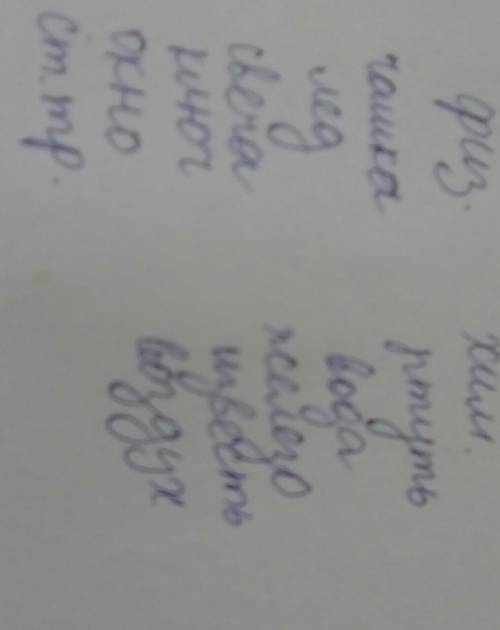 физ. хим.
чашка ртуть
лед вода
свеча железо
ключ известь
окно воздух
ст.тр.